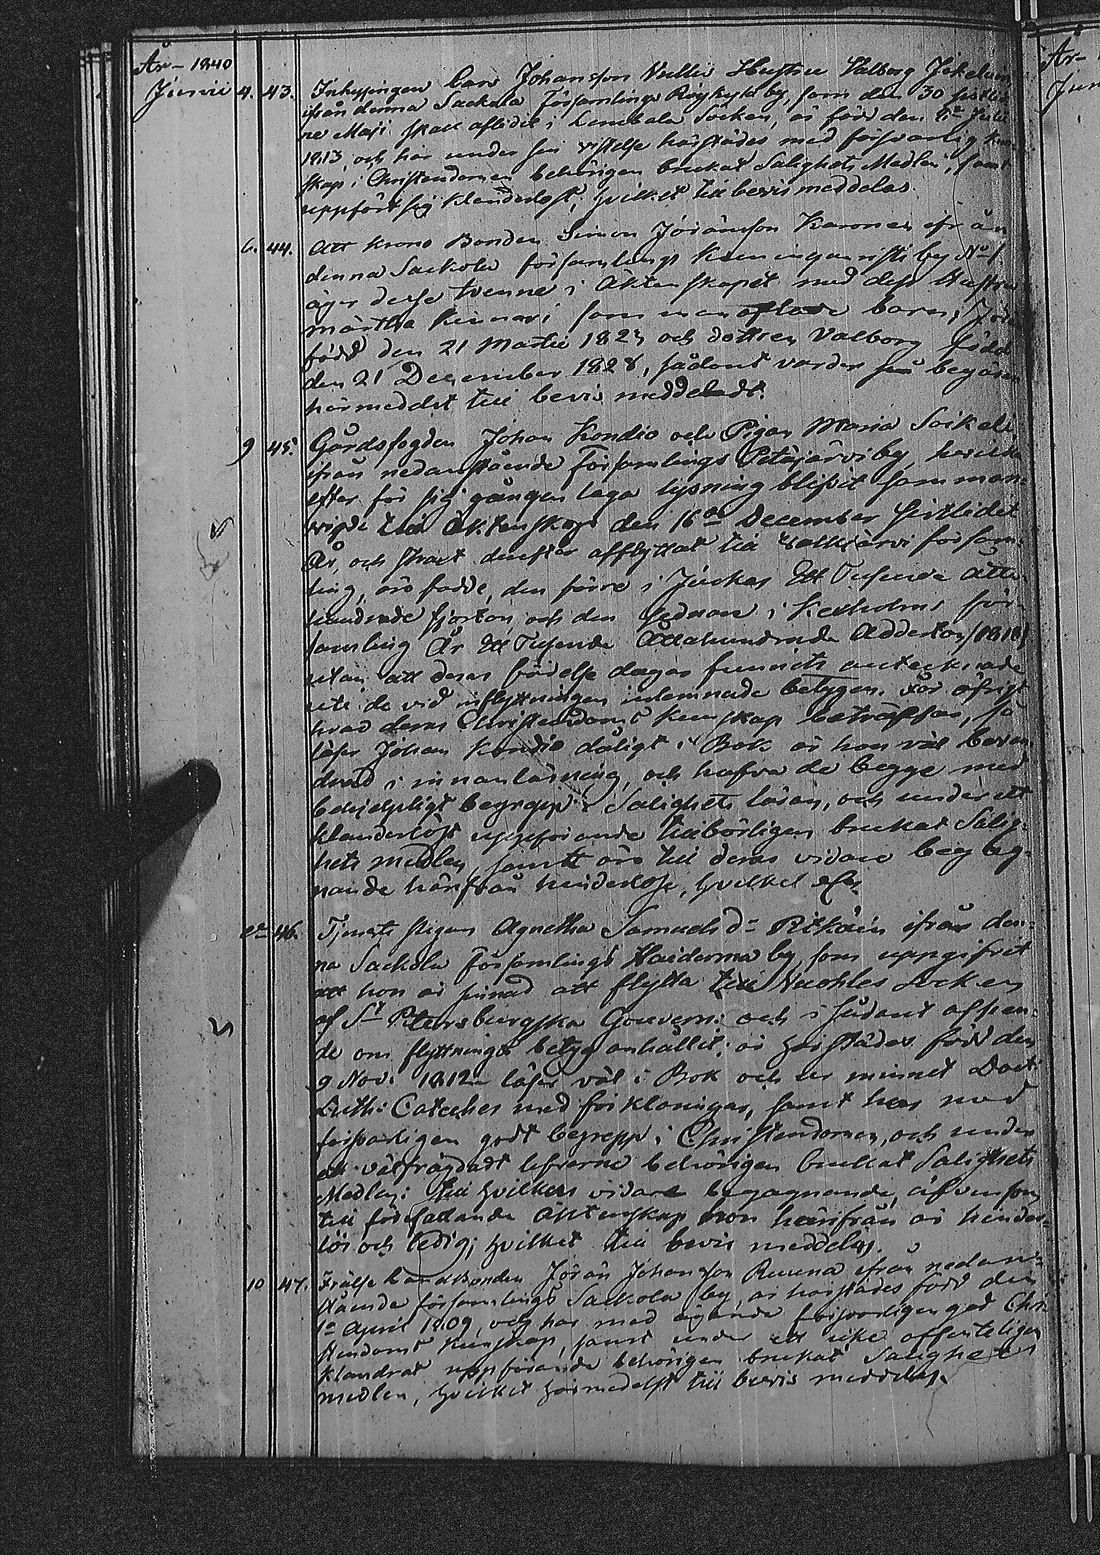 År 1840
Junii 4. 43. Inhysingen Lars Johansson Hustru Valborg
ifrån denna Sackola Församlings by, som den 30 sistlid-
ne Maji skall aflidit i Lembala Socken, är född den
1813 och har under sin vistelse härstädes med försvarlig kun-
skap i Christendomen behörigen brukat Salighets Medlen, samt
uppfört sig klanderlöst; hvilket till bevis meddelas.
6. 44. Att Krono Bonden Simon Jöransson Karonen ifrån
denna Sackola församlings by No 1
äger desse tvenne i Äktenskapet med dess Hustru
Märtha Kinnari sammanaflade barn;
född den 21 Martii 1823 och dottren Valborg född
den 21 December 1828, sådant varder på begäran
härmedelst till bevis meddeladt.
9 45. Gårdsfogden Johan Kondio och Pigan Maria Soikeli
ifrån nedanstående Församlings Petäjärvi by, hvilka
efter för sig gången laga lysning blifvit samman-
vigde till Äktenskap den 16de December sistlidet
År, och strax derefter afflyttat till Valkjärvi försam-
ling, äro födde, den förre i Jäskis Ett Tusende Åtta-
hundrade fjorton och den sednare i Kexholms för-
samling År Ett Tusende Åttahundrade Adderton (1818)
utan att deras födelse dagar funnits antecknade
uti de vid inflyttningen inlemnade betygen. För öfrigt
hvad deras Christendoms kunskap beträffar, så
läser Johan Kondio dåligt i Bok är hon väl bevan-
drad i innanläsning, och hafva de begge med
behjelpligt begrepp i Salighets läran, och under ett
klanderlöst uppförande tillbörligen brukat Salig-
hets medlen, samt äro till deras vidare begag-
nande härifrån hinderlöse, hvilket
46. Tjenste pigan Agnetha Samuels dr Pitkäin ifrån den-
na Sackola Församlings Haiderma by, som uppgifvit
att hon är sinnad att flytta till Socken
af St Petersburgska Gouvern: och i sådant afseen-
de om flyttnings betyg anhållit; är härstädes född den
9 Nov: 1812 läser väl i Bok och ur minnet Doct:
Luth: Cateches med förklaringar, samt har med
försvarligen godt begrepp i Christendomen, och under
ett välfrägdadt lefverne behörigen brukat Salighets
Medlen: till hvilkas vidare begagnande, äfvensom
till förefallande Äktenskap hon härifrån är hinder-
lös och ledig; hvilket till bevis meddelas.
10 47. Frälse Landbonden Jöran Johansson Ruuna ifrån nedan-
stående församlings Sackola by, är härstädes född den
1 April 1809, och har med ägande försvarligen god Chri-
stendoms kunskap, samt under ett icke offenteligen
klandrat uppförande behörigen brukat Salighets
medlen, hvilket härmedelst till bevis meddelas.
År
Jun